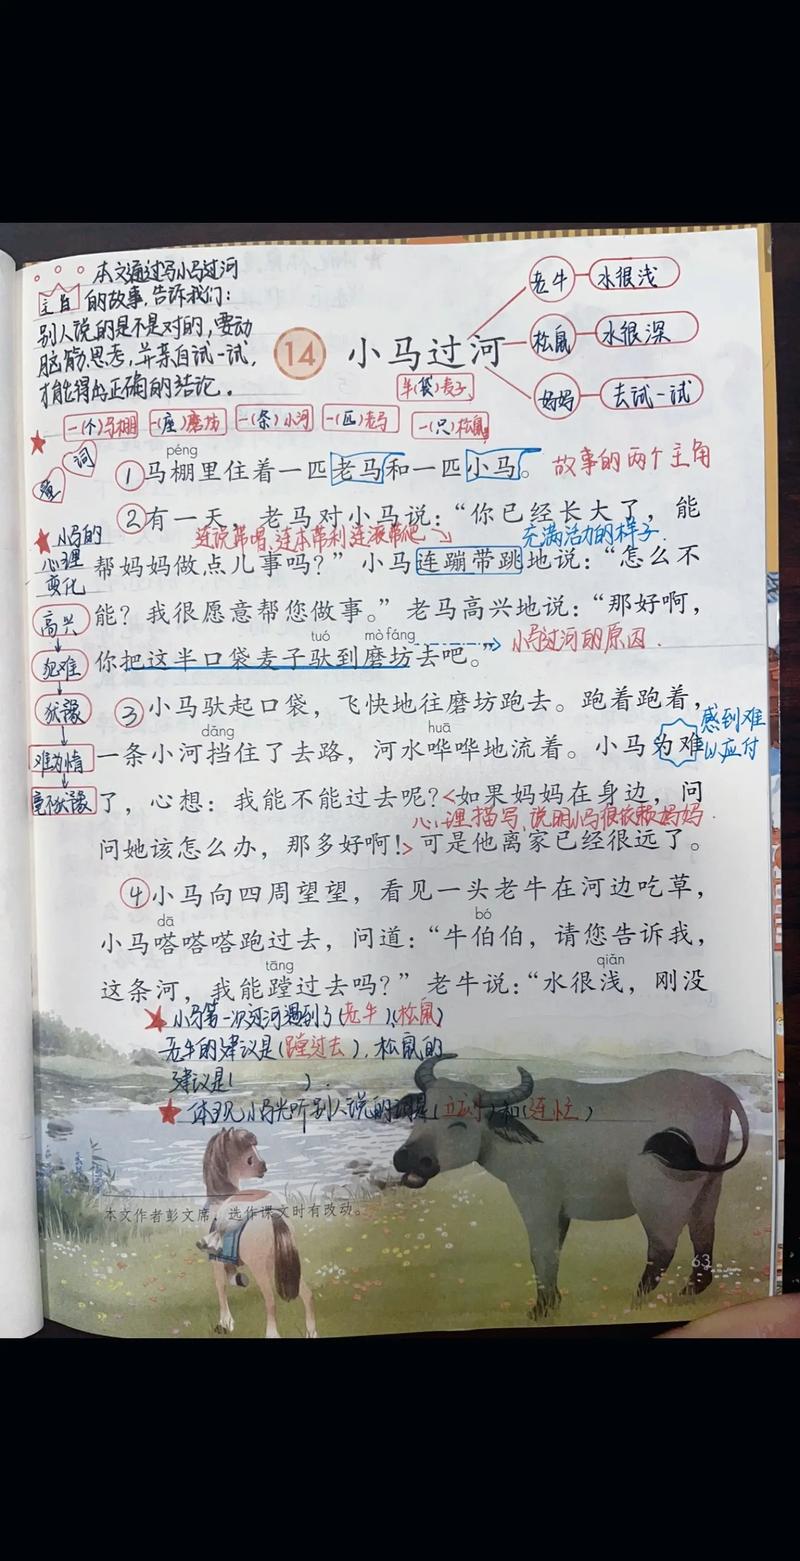 本文通过写小马过河
主旨 的故事,告诉我们:
别人说的是不是对的,要动
脑筋思考,并亲自试一试,
才能得出正确的结论。
14 小马过河
老牛 水很浅
松鼠 水很深
妈妈 去试一试
半(袋)麦子
一(个)马棚 一(座)磨坊 一(条)小河 一(匹)老马 一(只)松鼠
量 词
péng
①马棚里住着一匹老马和一匹小马。 故事的两个主角
②有一天,老马对小马说:“你已经长大了,能
连说带唱、连本带利、连滚带爬 充满活力的样子.
帮妈妈做点儿事吗?”小马连蹦带跳地说:“怎么不
能?我很愿意帮您做事。”老马高兴地说:“那好啊,
tuó mò fáng
你把这半口袋麦子驮到磨坊去吧。” 小马过河的原因.
③小马驮起口袋,飞快地往磨坊跑去。跑着跑着,
dǎng huā
一条小河挡住了去路,河水哗哗地流着。小马为难
感到难
以应付
了,心想:我能不能过去呢?<如果妈妈在身边,问
心理描写,说明小马很依赖妈妈.
问她该怎么办,那多好啊!>可是他离家已经很远了。
小马的
心理
变化
高兴
犯难
犹豫
难为情
毫不犹豫
④小马向四周望望,看见一头老牛在河边吃草,
dā bó
小马嗒嗒嗒跑过去,问道:“牛伯伯,请您告诉我,
tāng qiǎn
这条河,我能蹚过去吗?”老牛说:“水很浅,刚没
小马第一次过河遇到了(老牛)(松鼠)
老牛的建议是(蹚过去),松鼠的
建议是( ).
体现小马光听别人说的词是(立刻)和(连忙)
本文作者彭文席,选作课文时有改动。
63